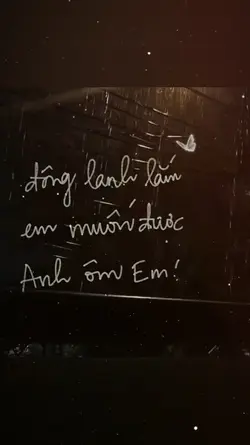 đông lanh lắm
em muốn được
Anh ôm Em!